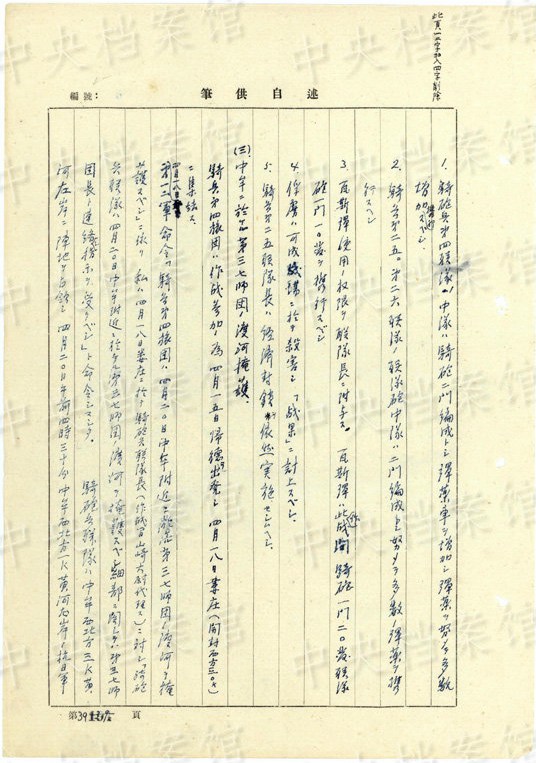 此頁一五字加入四字削除
編號：
筆供述自
1. 騎砲兵第四聯隊ノ中隊ハ騎砲二門編成トシ弾薬車ヲ増加シ弾薬ヲ努メテ多数
増加スベシ
2. 騎兵第二五、第二六聯隊ノ聯隊砲中隊ハ二門編成トシ努メテ多数ノ弾薬ヲ携
行スベシ
3. 瓦斯弾使用ノ权限ヲ聯隊長ニ附与ス。瓦斯弾ハ此戦闘騎砲一門二〇発聯隊
砲一門一〇発ヲ携行スベシ
4. 俘虜ハ可成戦場ニ於テ殺害シ「战果」ニ計上スベシ
5. 騎兵第二五聯隊長ハ経済封鎖ヲ依然実施セシムベシ
(三) 中牟ニ於ケル第三七師団ノ渡河掩護、
騎兵第四旅団ハ作战参加ノ為四月一五日帰德出発シ四月一八日婁庄(開封西方三〇K)
ニ集結ス
四月一八日
第一二軍命令「騎兵第四旅団ハ四月二〇日中牟附近ニ於ケル第三七師団ノ渡河ヲ掩
護スベシ」ニ依リ私ハ四月一八日婁庄ニ於テ騎砲兵聯隊長(作战間山崎大尉代理ス)ニ対シ「騎砲
兵聯隊ハ四月二〇日中牟附近ニ於ケル第三七師団ノ渡河ヲ掩護スベシ細部ニ関シテハ第三七師
団長ニ連絡指示ヲ受クベシ」ト命令シマシタ。騎砲兵聯隊ハ中牟西北方三K黄
河左岸ニ陣地ヲ占領シ四月二〇日午前四時三十分中牟西北方一K黄河右岸ノ抗日軍
第39頁